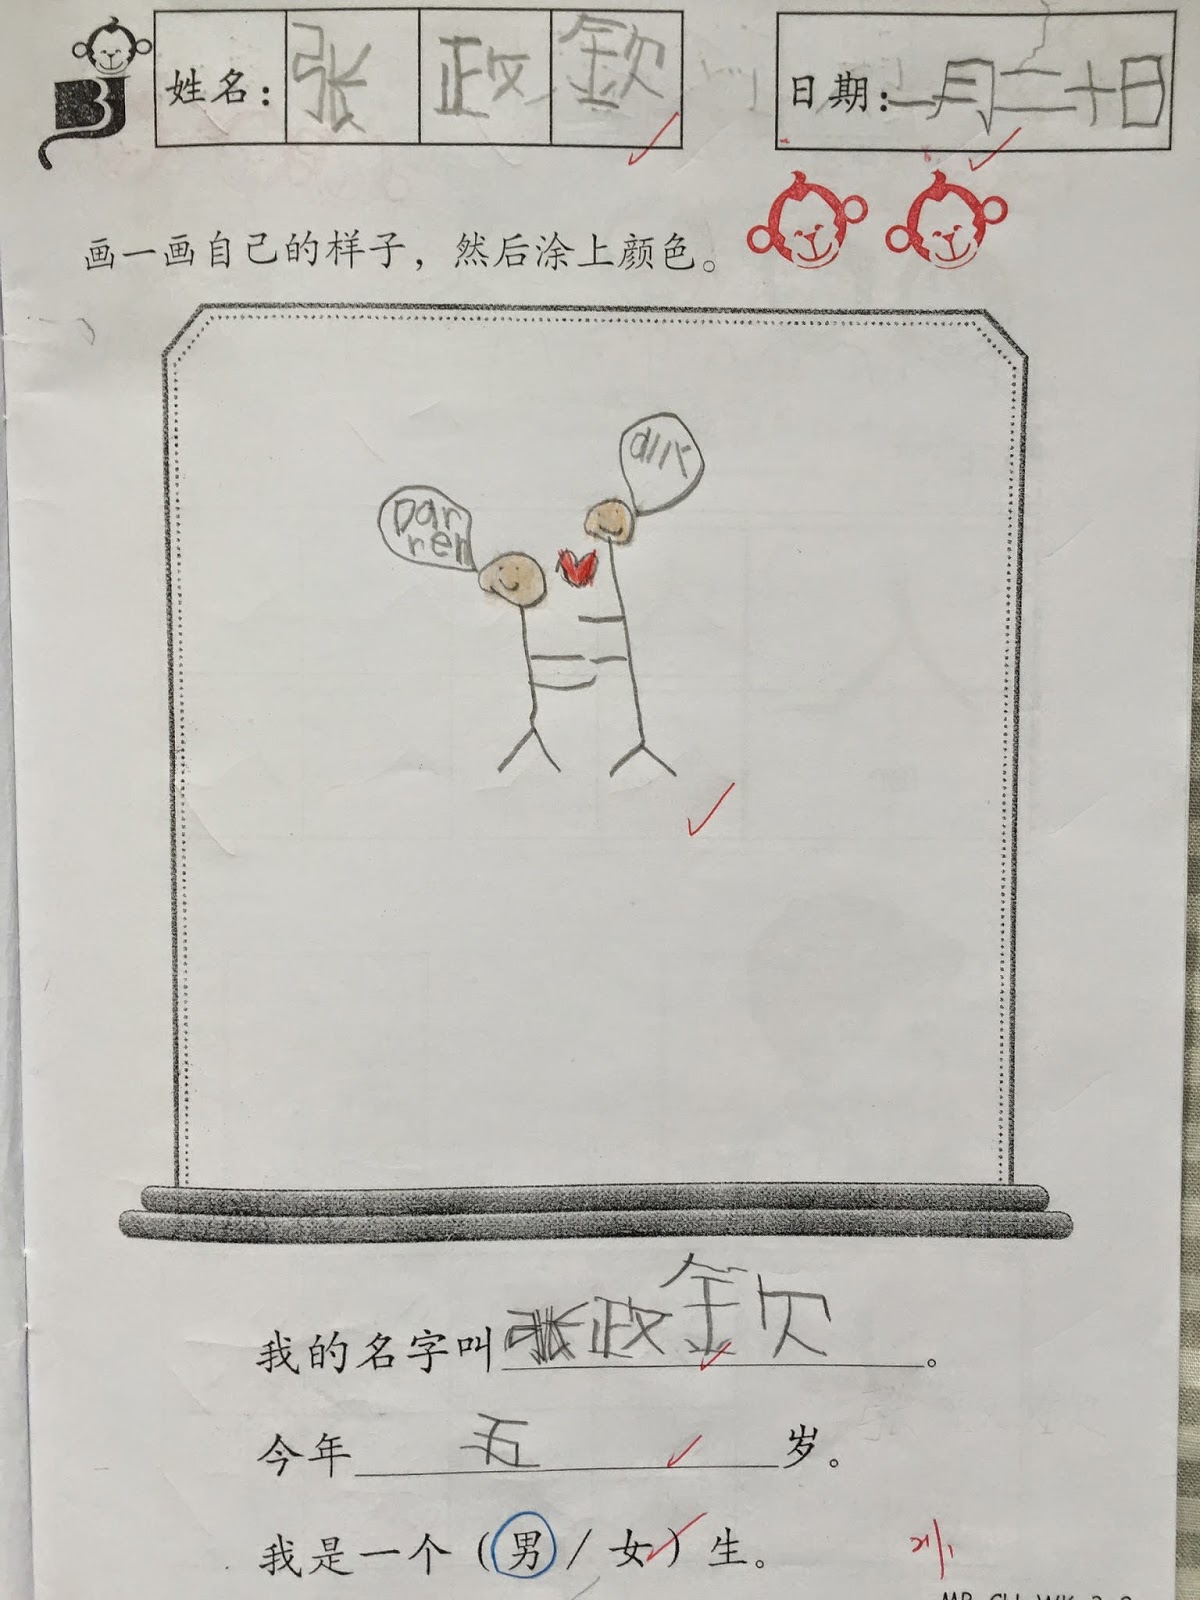 姓名：张政欽
日期：一月二十日
画一画自己的样子，然后涂上颜色。
Dar
ren
我的名字叫张政欽。
今年五岁。
我是一个（男／女）生。